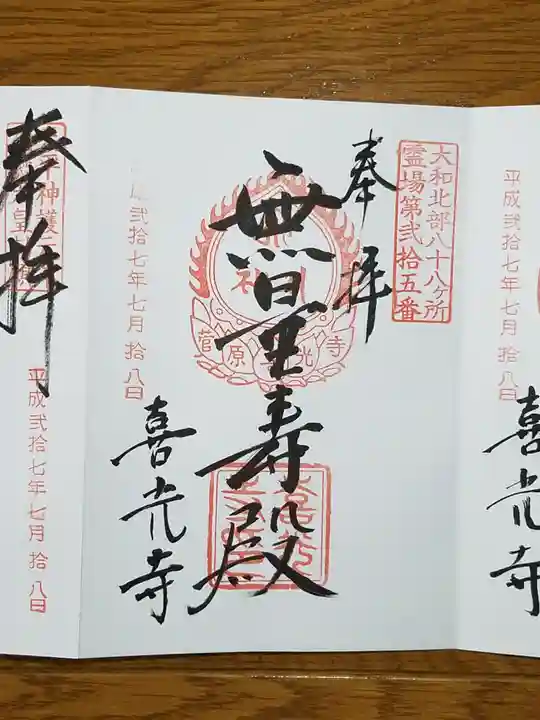 平成弐拾七年七月拾八日
喜光寺
大和北部八十八ヶ所
霊場第弐拾五番
奉拝
無量寿殿
菅原 光寺
弐拾七年七月拾八日
喜光寺
奉拝
平成弐拾七年七月拾八日